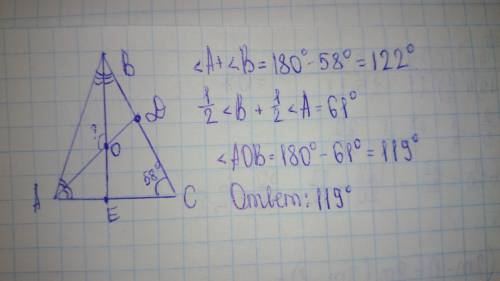 B
D
?
O
58°
A
E
C
<A+<B=180°-58°=122°
1/2<B+1/2<A=61°
<AOB=180°-61°=119°
Ответ: 119°